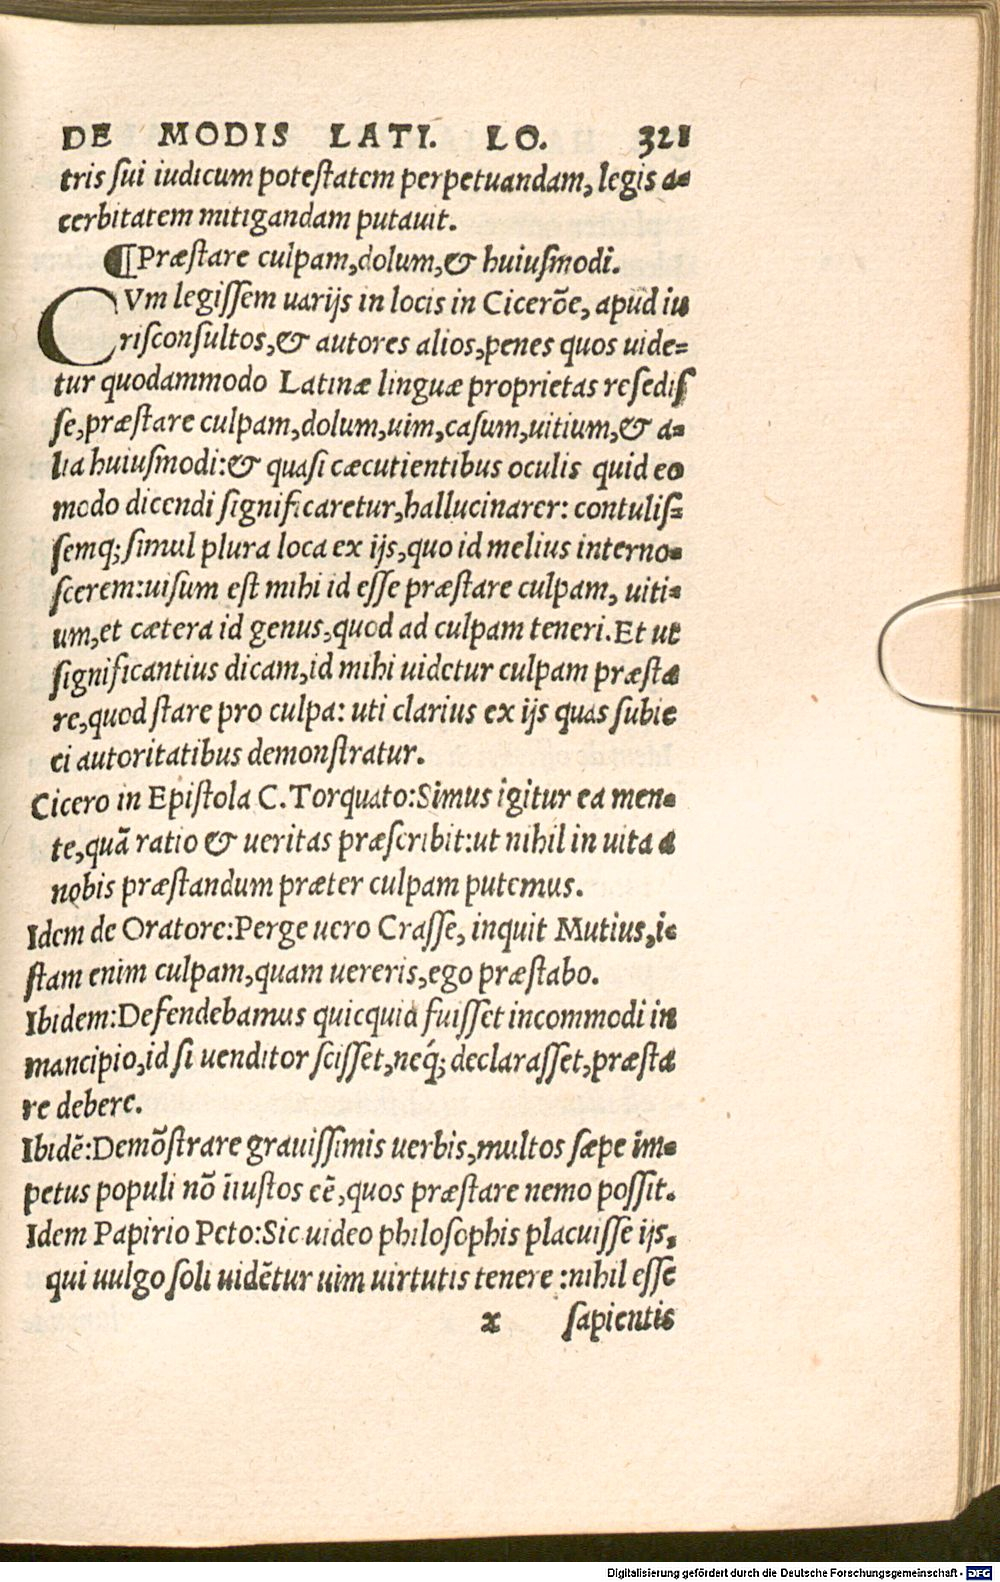 DE MODIS LATI. LO. 321
tris sui iudicum potestatem perpetuandam, legis a-
cerbitatem mitigandam putauit.
¶Præstare culpam,dolum,& huiusmodi.
CVm legissem uarijs in locis in Cicerõe, apud iu
risconsultos,& autores alios,penes quos uide=
tur quodammodo Latinæ linguæ proprietas resedis
se,præstare culpam,dolum,uim,casum,uitium,& a-
lia huiusmodi:& quasi cæcutientibus oculis quid eo
modo dicendi significaretur,hallucinarer: contulis=
semq; simul plura loca ex ijs,quo id melius interno-
scerem:uisum est mihi id esse præstare culpam, uiti-
um,et cætera id genus,quod ad culpam teneri.Et ut
significantius dicam,id mihi uidetur culpam præsta
re,quod stare pro culpa: uti clarius ex ijs quas subie
ci autoritatibus demonstratur.
Cicero in Epistola C.Torquato:Simus igitur ea men-
te,quã ratio & ueritas præscribit:ut nihil in uita a
nobis præstandum præter culpam putemus.
Idem de Oratore:Perge uero Crasse, inquit Mutius,i-
stam enim culpam,quam uereris,ego præstabo.
Ibidem:Defendebamus quicquid fuisset incommodi in
mancipio,id si uenditor scisset,neq́; declarasset,præsta
re debere.
Ibidẽ:Demõstrare grauissimis uerbis,multos sæpe im-
petus populi nõ iniustos eẽ,quos præstare nemo possit.
Idem Papirio Peto:Sic uideo philosophis placuisse ijs,
qui uulgo soli uidẽtur uim uirtutis tenere :nihil esse
x sapientis
Digitalisierung gefördert durch die Deutsche Forschungsgemeinschaft - DFG